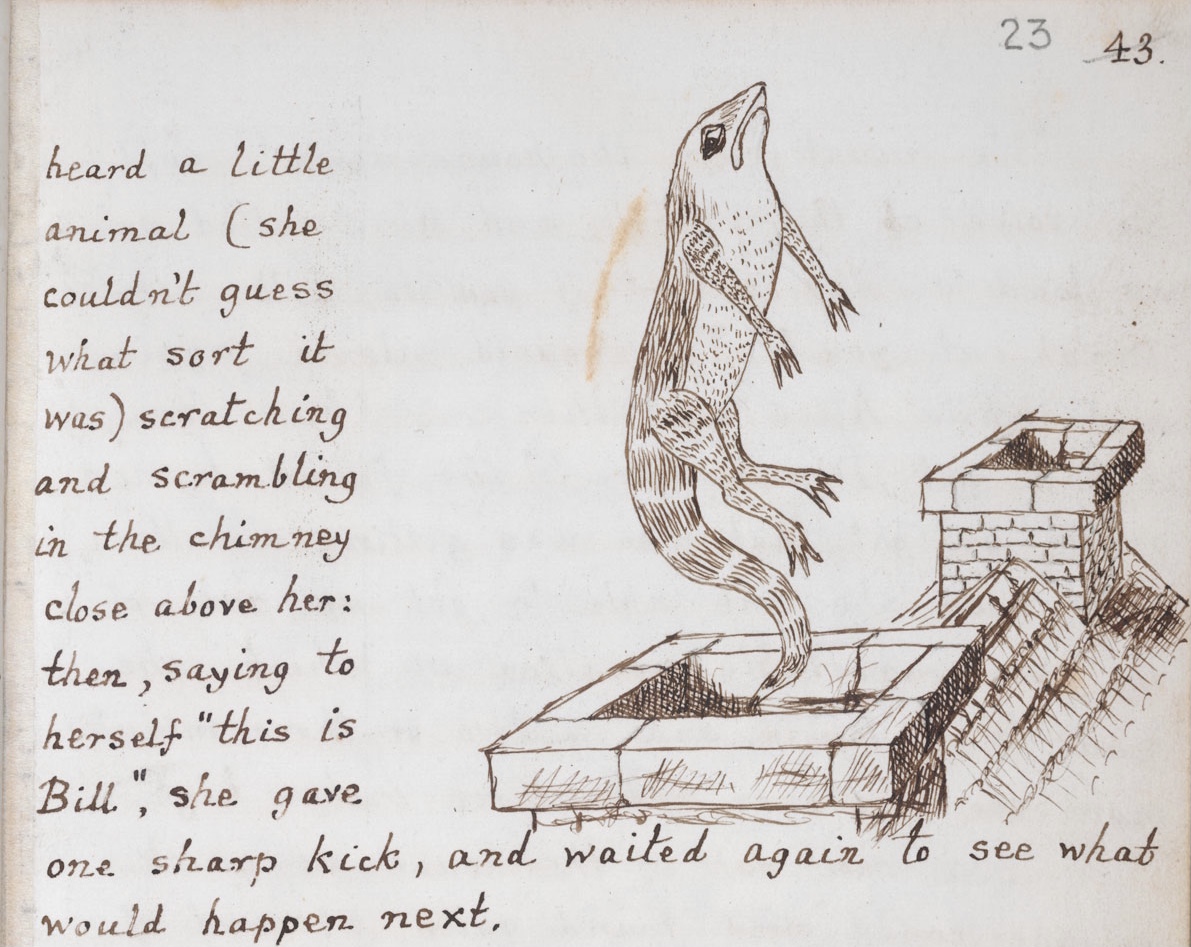 23 43.
heard a little
animal (she
couldn't guess
what sort it
was) scratching
and scrambling
in the chimney
close above her:
then, saying to
herself "this is
Bill", she gave
one sharp kick, and waited again to see what
would happen next.